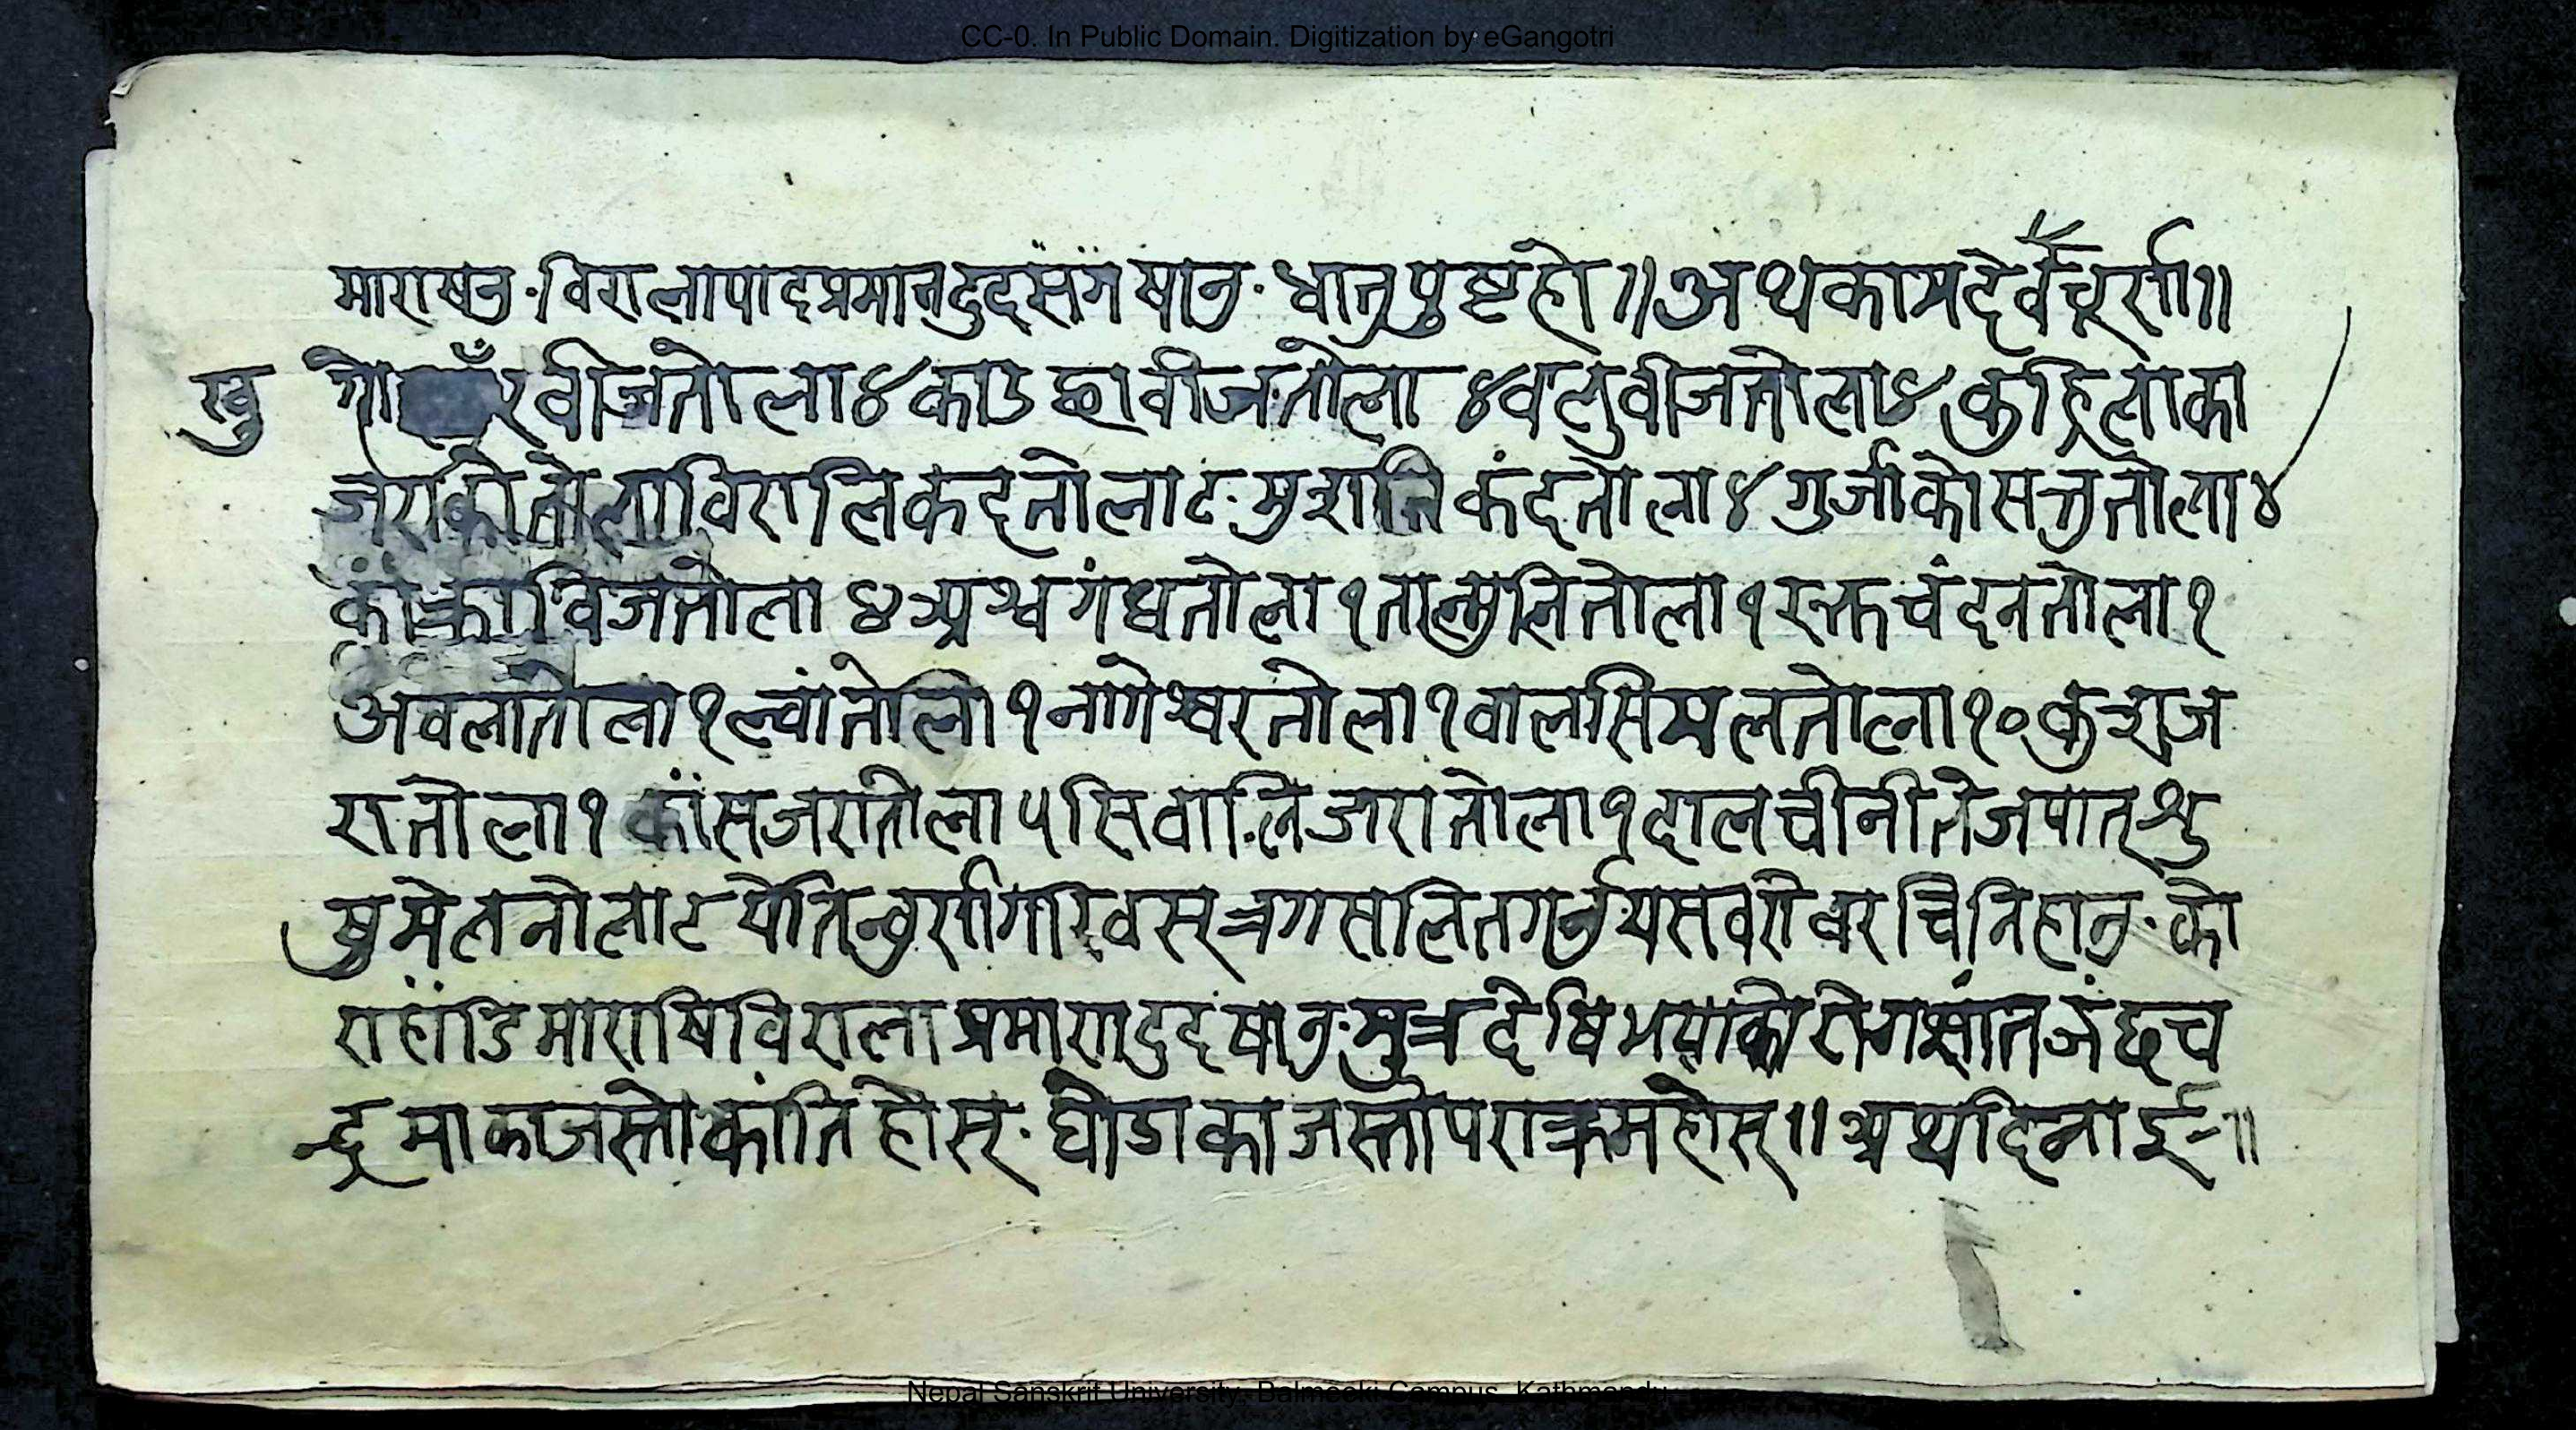 CC-0. In Public Domain. Digitization by eGangotri
माराषनु·विरालापादप्रमानदुदसँगषानु·धातुपुष्टहो॥अथकामदेवचूर्रा॥
खु गोरवीजतोला४काउछावीजतोला४वलुवीजतोला४कुहिलाका
जराकोतोलाविरालिकदतोला८मुशलिकंदतोला४गुर्जोकोसत्ततोला४
कांक्राविजतोला४अश्वगंधतोला१तालमुलितोला१रक्तचंदनतोला१
अवलातोला१ल्वांतोला१नागेश्वरतोला१वालसिमलतोला१०कुशज
रातोला१काँसजरातोला५सिवालिजरातोला१दालचीनीतेजपातश्रु
षुमेलतोला८ वस्त्र सवरोवरचिनिहानु·को
राहाँडिमाराषिविरालाप्रमारादुदषानु·मुत्रदेषिभयाकोरोगशांतजंछच
न्द्रमाकाजस्तोकांतिहोस्·घोडाकाजस्तोपराक्रमहोस्॥अथदिनाई॥
Nepal Sanskrit University, Balmeeki Campus, Kathmandu